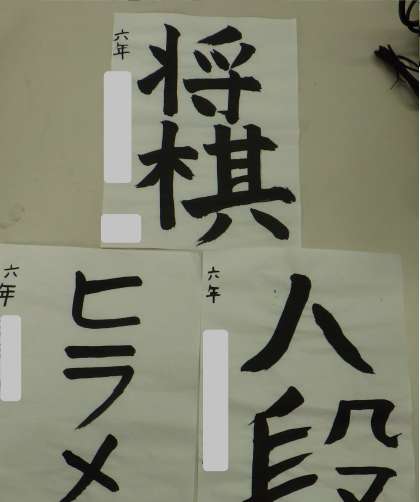 六年
将棋
六年
ヒラメ
六年
八段